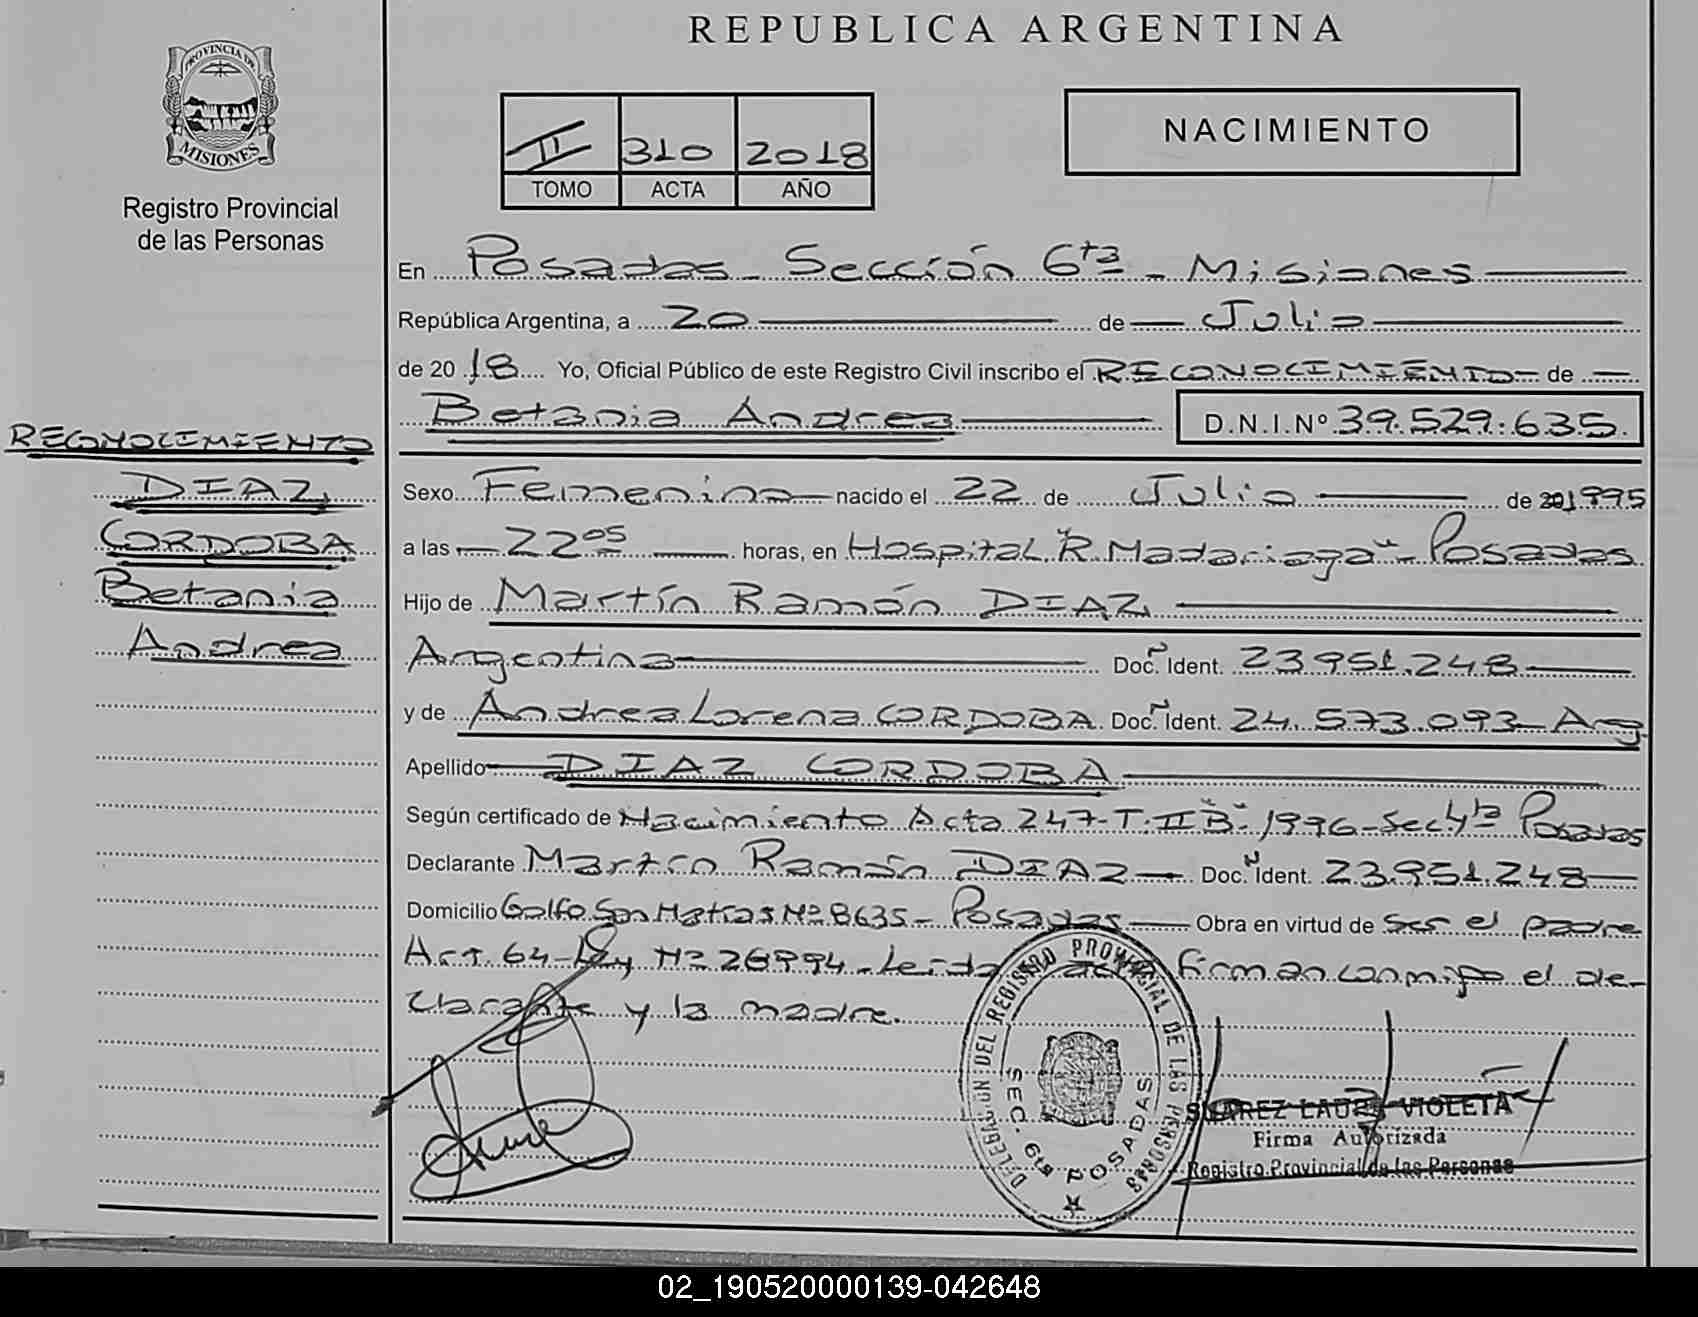 REPUBLICA ARGENTINA
PROVINCIA DE
MISIONES
Registro Provincial
de las Personas
NACIMIENTO
II 310 2018
TOMO ACTA AÑO
En Posadas - Sección 6ta - Misiones
República Argentina, a 20 de Julio
de 2018 Yo, Oficial Público de este Registro Civil inscribo el RECONOCIMIENTO de
Betania Andrea D.N.I.Nº 39.529.635.
RECONOCIMIENTO
DIAZ
CORDOBA
Betania
Andrea
Sexo Femenino nacido el 22 de Julio de 1995
a las 22 05 horas, en Hospital "R. Madariaga" - Posadas
Hijo de Martín Ramón DIAZ
Argentino Doc. Ident. 23.951.248
y de Andrea Lorena CORDOBA Doc. Ident. 24.573.093 - Arg
Apellido DIAZ CORDOBA
Según certificado de Nacimiento Acta 247-T.II"B"-1996-Sec 4ta Posadas
Declarante Martín Ramón DIAZ Doc. Ident. 23.951.248
Domicilio Golfo San Matias Nº 8635 - Posadas Obra en virtud de ser el padre
Art. 64 - Ley Nº 26994 - Leida acta firman conmigo el de-
clarante y la madre.
DELEGACION DEL REGISTRO PROVINCIAL DE LAS PERSONAS
SEC. 6ta POSADAS
SUAREZ LAURA VIOLETA
Firma Autorizada
Registro Provincial de las Personas
02_190520000139-042648